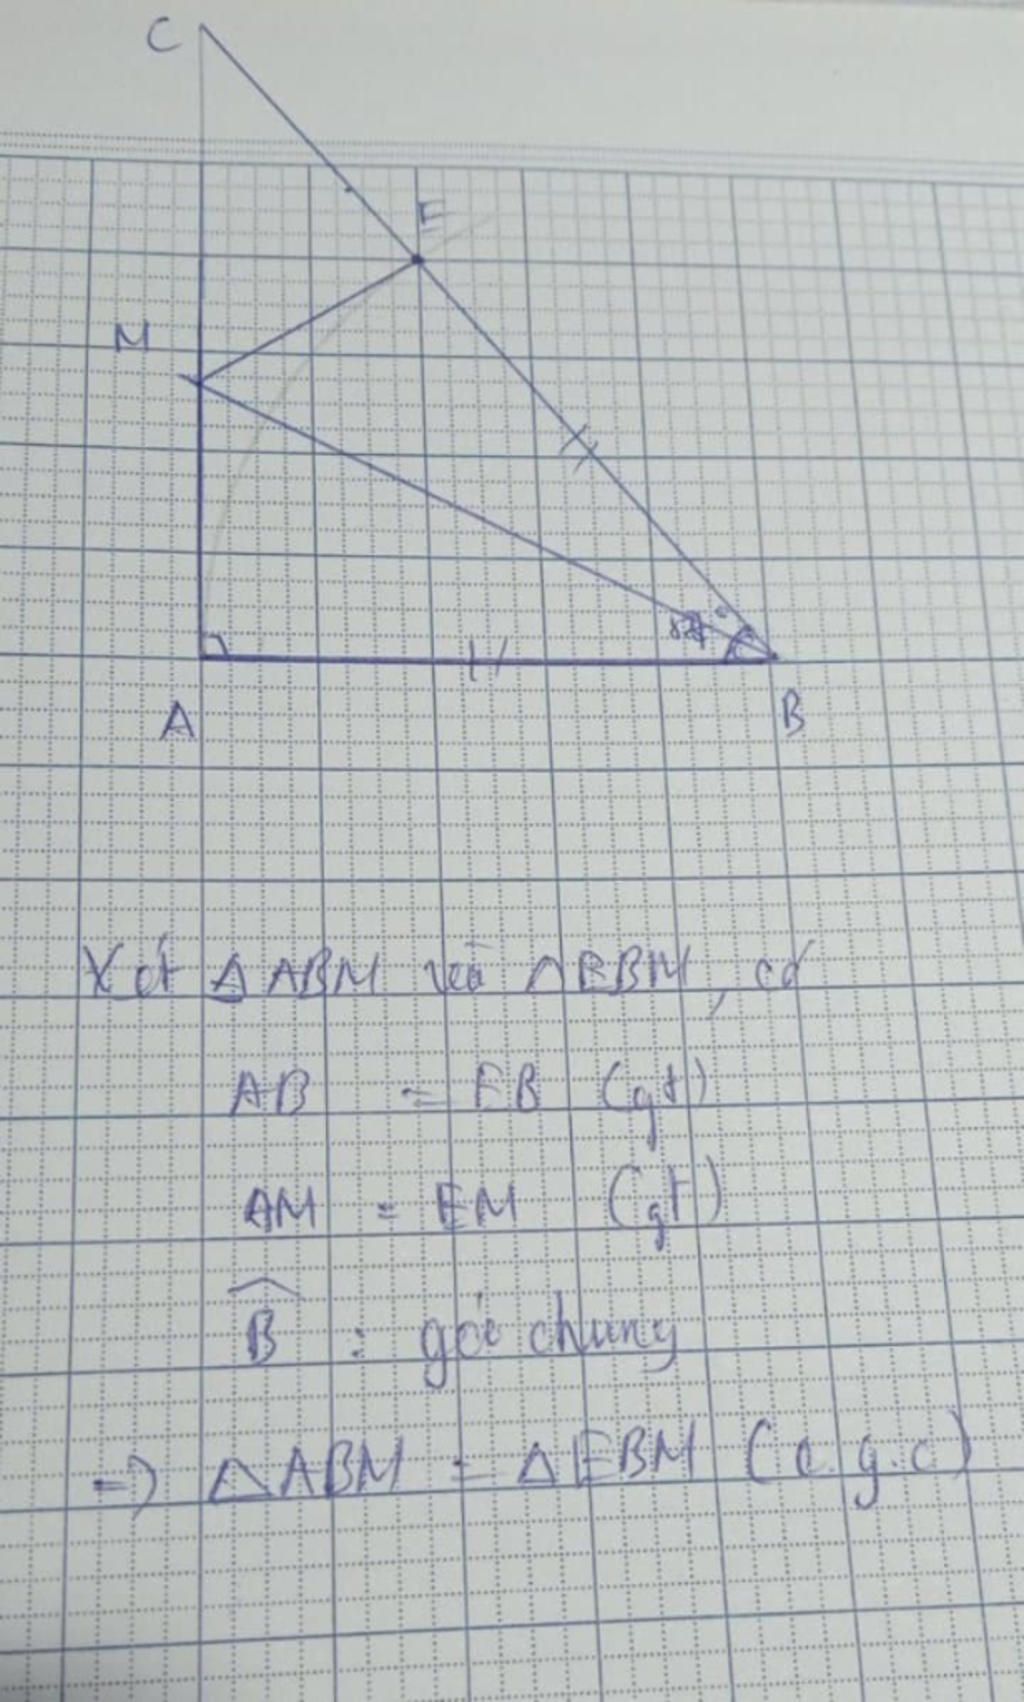 C
E
M
A
B
Xét △ABM và △EBM, có
AB = EB (gt)
AM = EM (gt)
B̂ : góc chung
=> △ABM = △EBM (c.g.c)